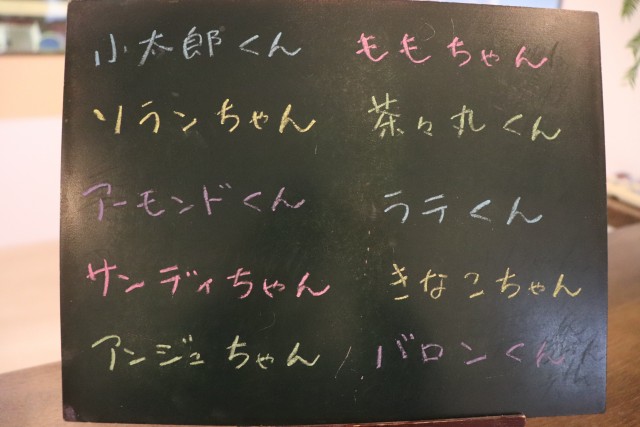 小太郎くん ももちゃん
ソランちゃん 茶々丸くん
アーモンドくん ラテくん
サンディちゃん きなこちゃん
アンジュちゃん / バロンくん